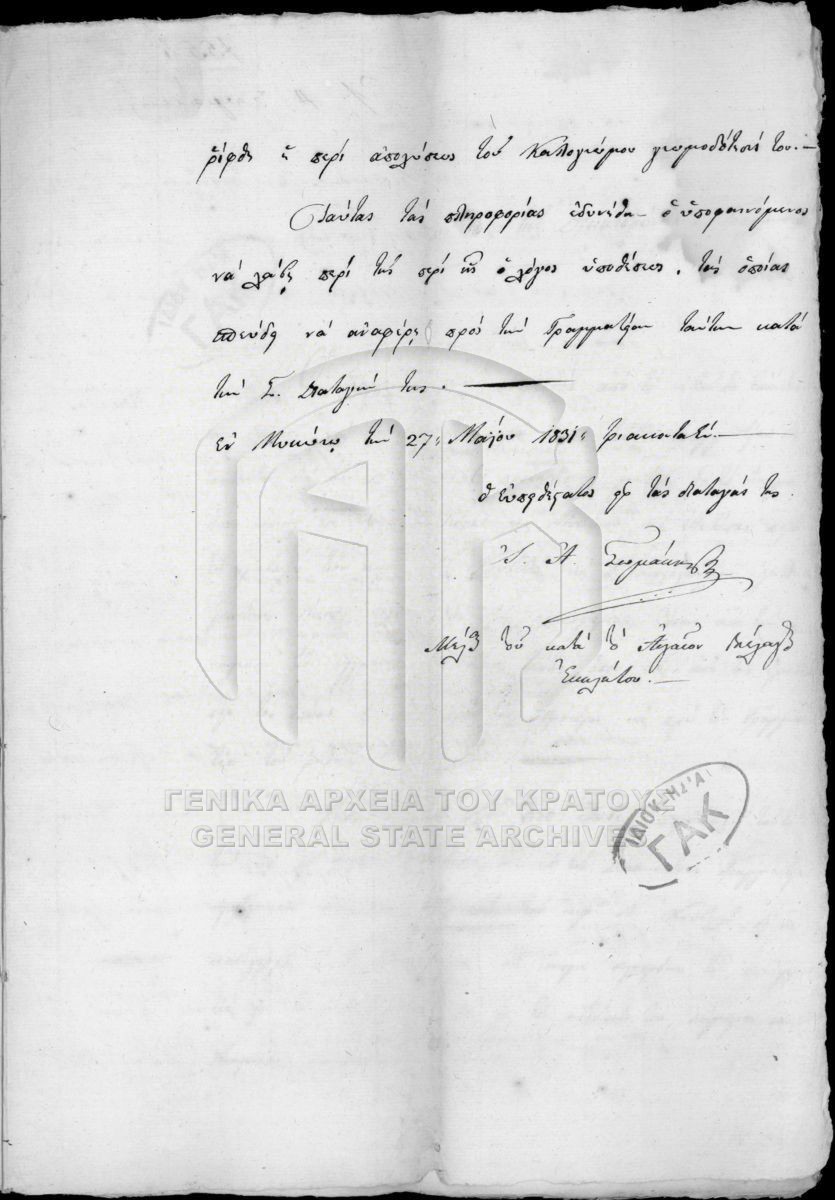 ῥίφθη ἡ περὶ ἀπολύσεως τοῦ Καλογιώμου γνωμοδότησί του.—
Ταύτας τὰς πληροφορίας ἐδυνήθη ὁ ὑποφαινόμενος
νὰ λάβῃ περὶ τῆς περὶ ἧς ὁ λόγος ὑποθέσεως, τὰς ὁποίας
σπεύδει νὰ ἀναφέρῃ πρὸς τὴν Γραμματείαν ταύτην κατὰ
τὴν Σ. Διαταγήν της.—
Ἐν Μυκόνῳ τὴν 27 Μαΐου 1831 τριακοστὸν ἕν.—
Ὁ εὐπειθέστατος εἰς τὰς διαταγάς της
Ἰ. Α.
Μέλος τοῦ κατὰ τὸ Αἰγαῖον Πέλαγος
Ἐκκλήτου.—
ΓΕΝΙΚΑ ΑΡΧΕΙΑ ΤΟΥ ΚΡΑΤΟΥΣ
GENERAL STATE ARCHIVES
ΙΔΙΟΚΤΗΣΙΑ
ΓΑΚ